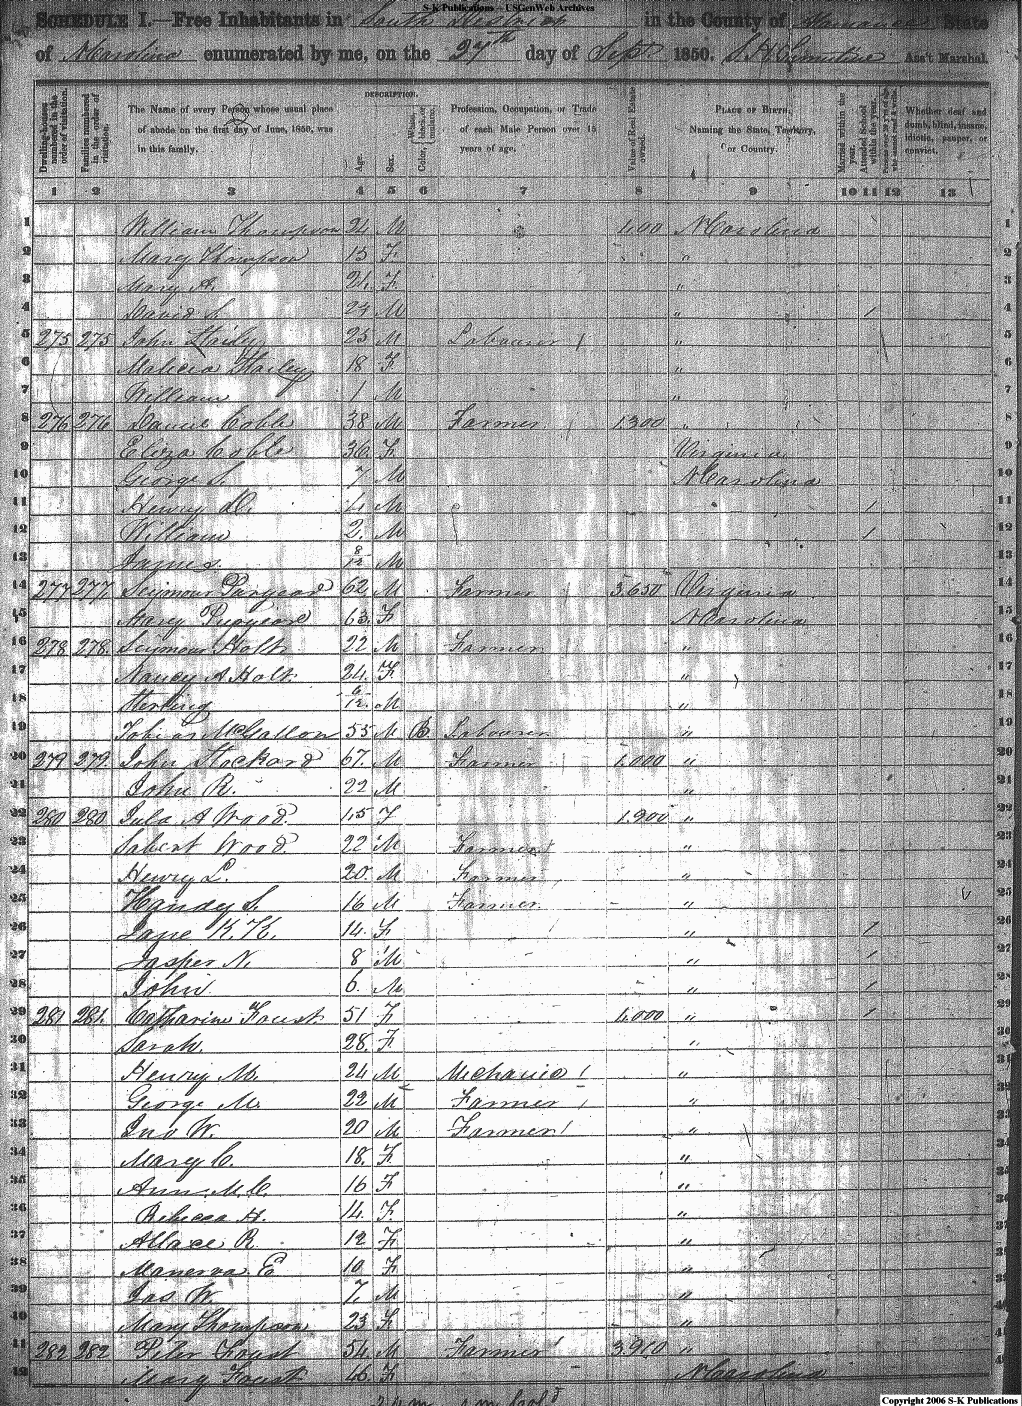 S-K Publications – USGenWeb Archives
SCHEDULE I.—Free Inhabitants in South District in the County of Alamance State
of N Carolina enumerated by me, on the 27th day of Sept 1850. Ass't Marshal.
DESCRIPTION.
Dwelling-houses numbered in the order of visitation.
Families numbered in the order of visitation.
The Name of every Person whose usual place of abode on the first day of June, 1850, was in this family.
Age.
Sex.
Color, White, black, or mulatto.
Profession, Occupation, or Trade of each Male Person over 15 years of age.
Value of Real Estate owned.
PLACE OF BIRTH, Naming the State, Territory, or Country.
Married within the year.
Attended School within the year.
Whether deaf and dumb, blind, insane, idiotic, pauper, or convict.
1 2 3 4 5 6 7 8 9 10 11 12 13
1 William Thompson M 100 N Carolina 1
2 Mary Thompson F " 2
3 Mary A. F " 3
4 David S. M " 1 4
5 275 275 John Haily 25 M Labourer " 5
6 Haily 18 F " 6
7 William 1 M " 7
8 276 276 Daniel Coble 38 M Farmer 1300 " 8
9 Eliza Coble 36 F Virginia 9
10 George S. 7 M N Carolina 10
11 Henry D. 4 M 1 11
12 William 2 M 1 12
13 James 8/12 M 13
14 277 277 Seymour Puryear 62 M Farmer 3650 Virginia 14
15 Mary Puryear 63 F N Carolina 15
16 278 278 Seymour Holt 22 M Farmer " 16
17 Nancy A Holt 24 F " 17
18 Sterling 6/12 M " 18
19 55 M B Labourer " 19
20 279 279 John Stockard 67 M Farmer 1000 " 20
21 John R. 22 M " 21
22 280 280 A Wood F 1900 " 22
23 Wood 22 M Farmer " 23
24 Henry L. 20 M Farmer " 24
25 Handy S. 16 M Farmer " 25
26 Jane K. K. 14 F " 1 26
27 Jasper N. 8 M " 1 27
28 John 6 M " 1 28
29 281 281 Catharine Foust 51 F 1000 " 1 29
30 Sarah. 28 F " 30
31 Henry M. 24 M Mechanic " 31
32 George M. 22 M Farmer " 32
33 Jno W. 20 M Farmer " 33
34 Mary C. 18 F " 34
35 Ann M. C. 16 F " 35
36 Rebecca H. 14 F " 36
37 R. 12 F " 37
38 Manerva E 10 F " 38
39 Jas W. 7 M " 39
40 Mary Thompson 23 F " 40
41 282 282 Peter Foust 54 M Farmer " 41
42 Mary Foust 46 F N Carolina 42
Copyright 2006 S-K Publications